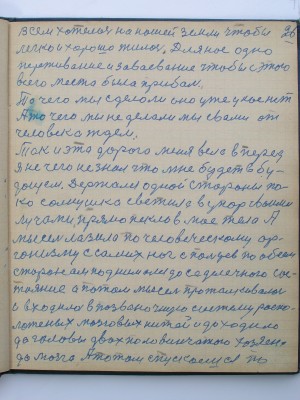 26
всем хотелось на нашей земли чтобы
легко и хорошо жилось. Для нас одно
переживание и завоевание чтобы с этого
всего места была прибыль.
То чего мы сделали оно уже у нас нет
А то чего мы не делали мы свами от
человека ждем.
Так и эта дорога меня вела вперед
Я не чего не знал что мне будет в бу-
дущем. Держался одной стороны по-
ка солнушко светила в упор своими
лучами, прямо пекло в мое тела А
мысел лазила по человеческому ор-
ганизму с самих ног с пальцев по обеим
сторонам поднимали до солнечного сос-
тияние а потом мысел проталкивалас
и входила в позвоночную систему распо-
ложеных мозговых нитей и до ходило
до головы двох половинчатого хозяено
до мозга А потом спускаемся по